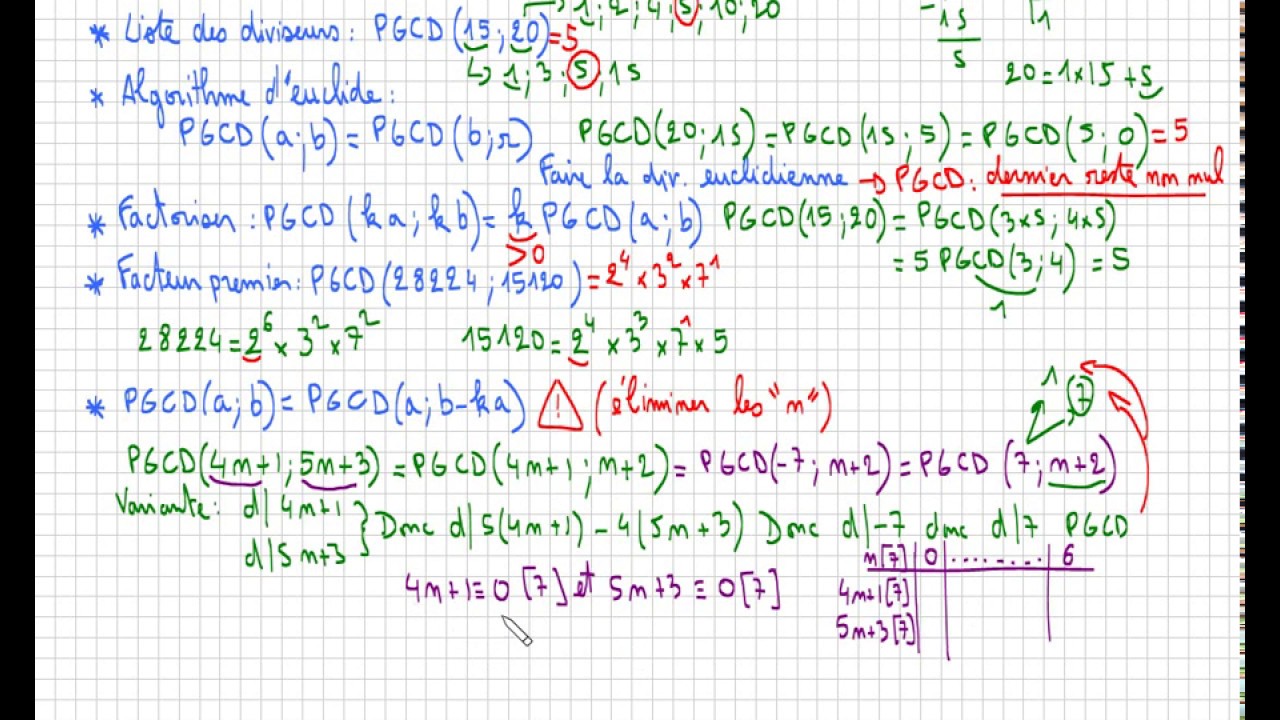 1; 2; 4; 5; 10; 20
* Liste des diviseurs: PGCD(15; 20)=5
↳ 1; 3; 5; 15
-15
5
1
20=1×15+5
* Algorithme d'euclide:
PGCD(a;b)=PGCD(b;r) PGCD(20;15)=PGCD(15;5)=PGCD(5;0)=5
Faire la div. euclidienne → PGCD: dernier reste non nul
* Factoriser: PGCD(ka; kb)=k PGCD(a;b) PGCD(15;20)=PGCD(3×5; 4×5)
>0
=5 PGCD(3;4)=5
1
* Facteur premier: PGCD(28224; 15120)=2⁴×3²×7¹
28224=2⁶×3²×7² 15120=2⁴×3³×7¹×5
* PGCD(a;b)=PGCD(a;b-ka) ! (éliminer les "n")
1 7
PGCD(4n+1; 5n+3)=PGCD(4n+1; n+2)=PGCD(-7; n+2)=PGCD(7; n+2)
Variante: d|4n+1
d|5n+3
} Donc d|5(4n+1)-4(5n+3) Donc d|-7 donc d|7 PGCD
n[7] 0 ........ 6
4n+1≡0[7] et 5n+3≡0[7]
4n+1[7]
5n+3[7]